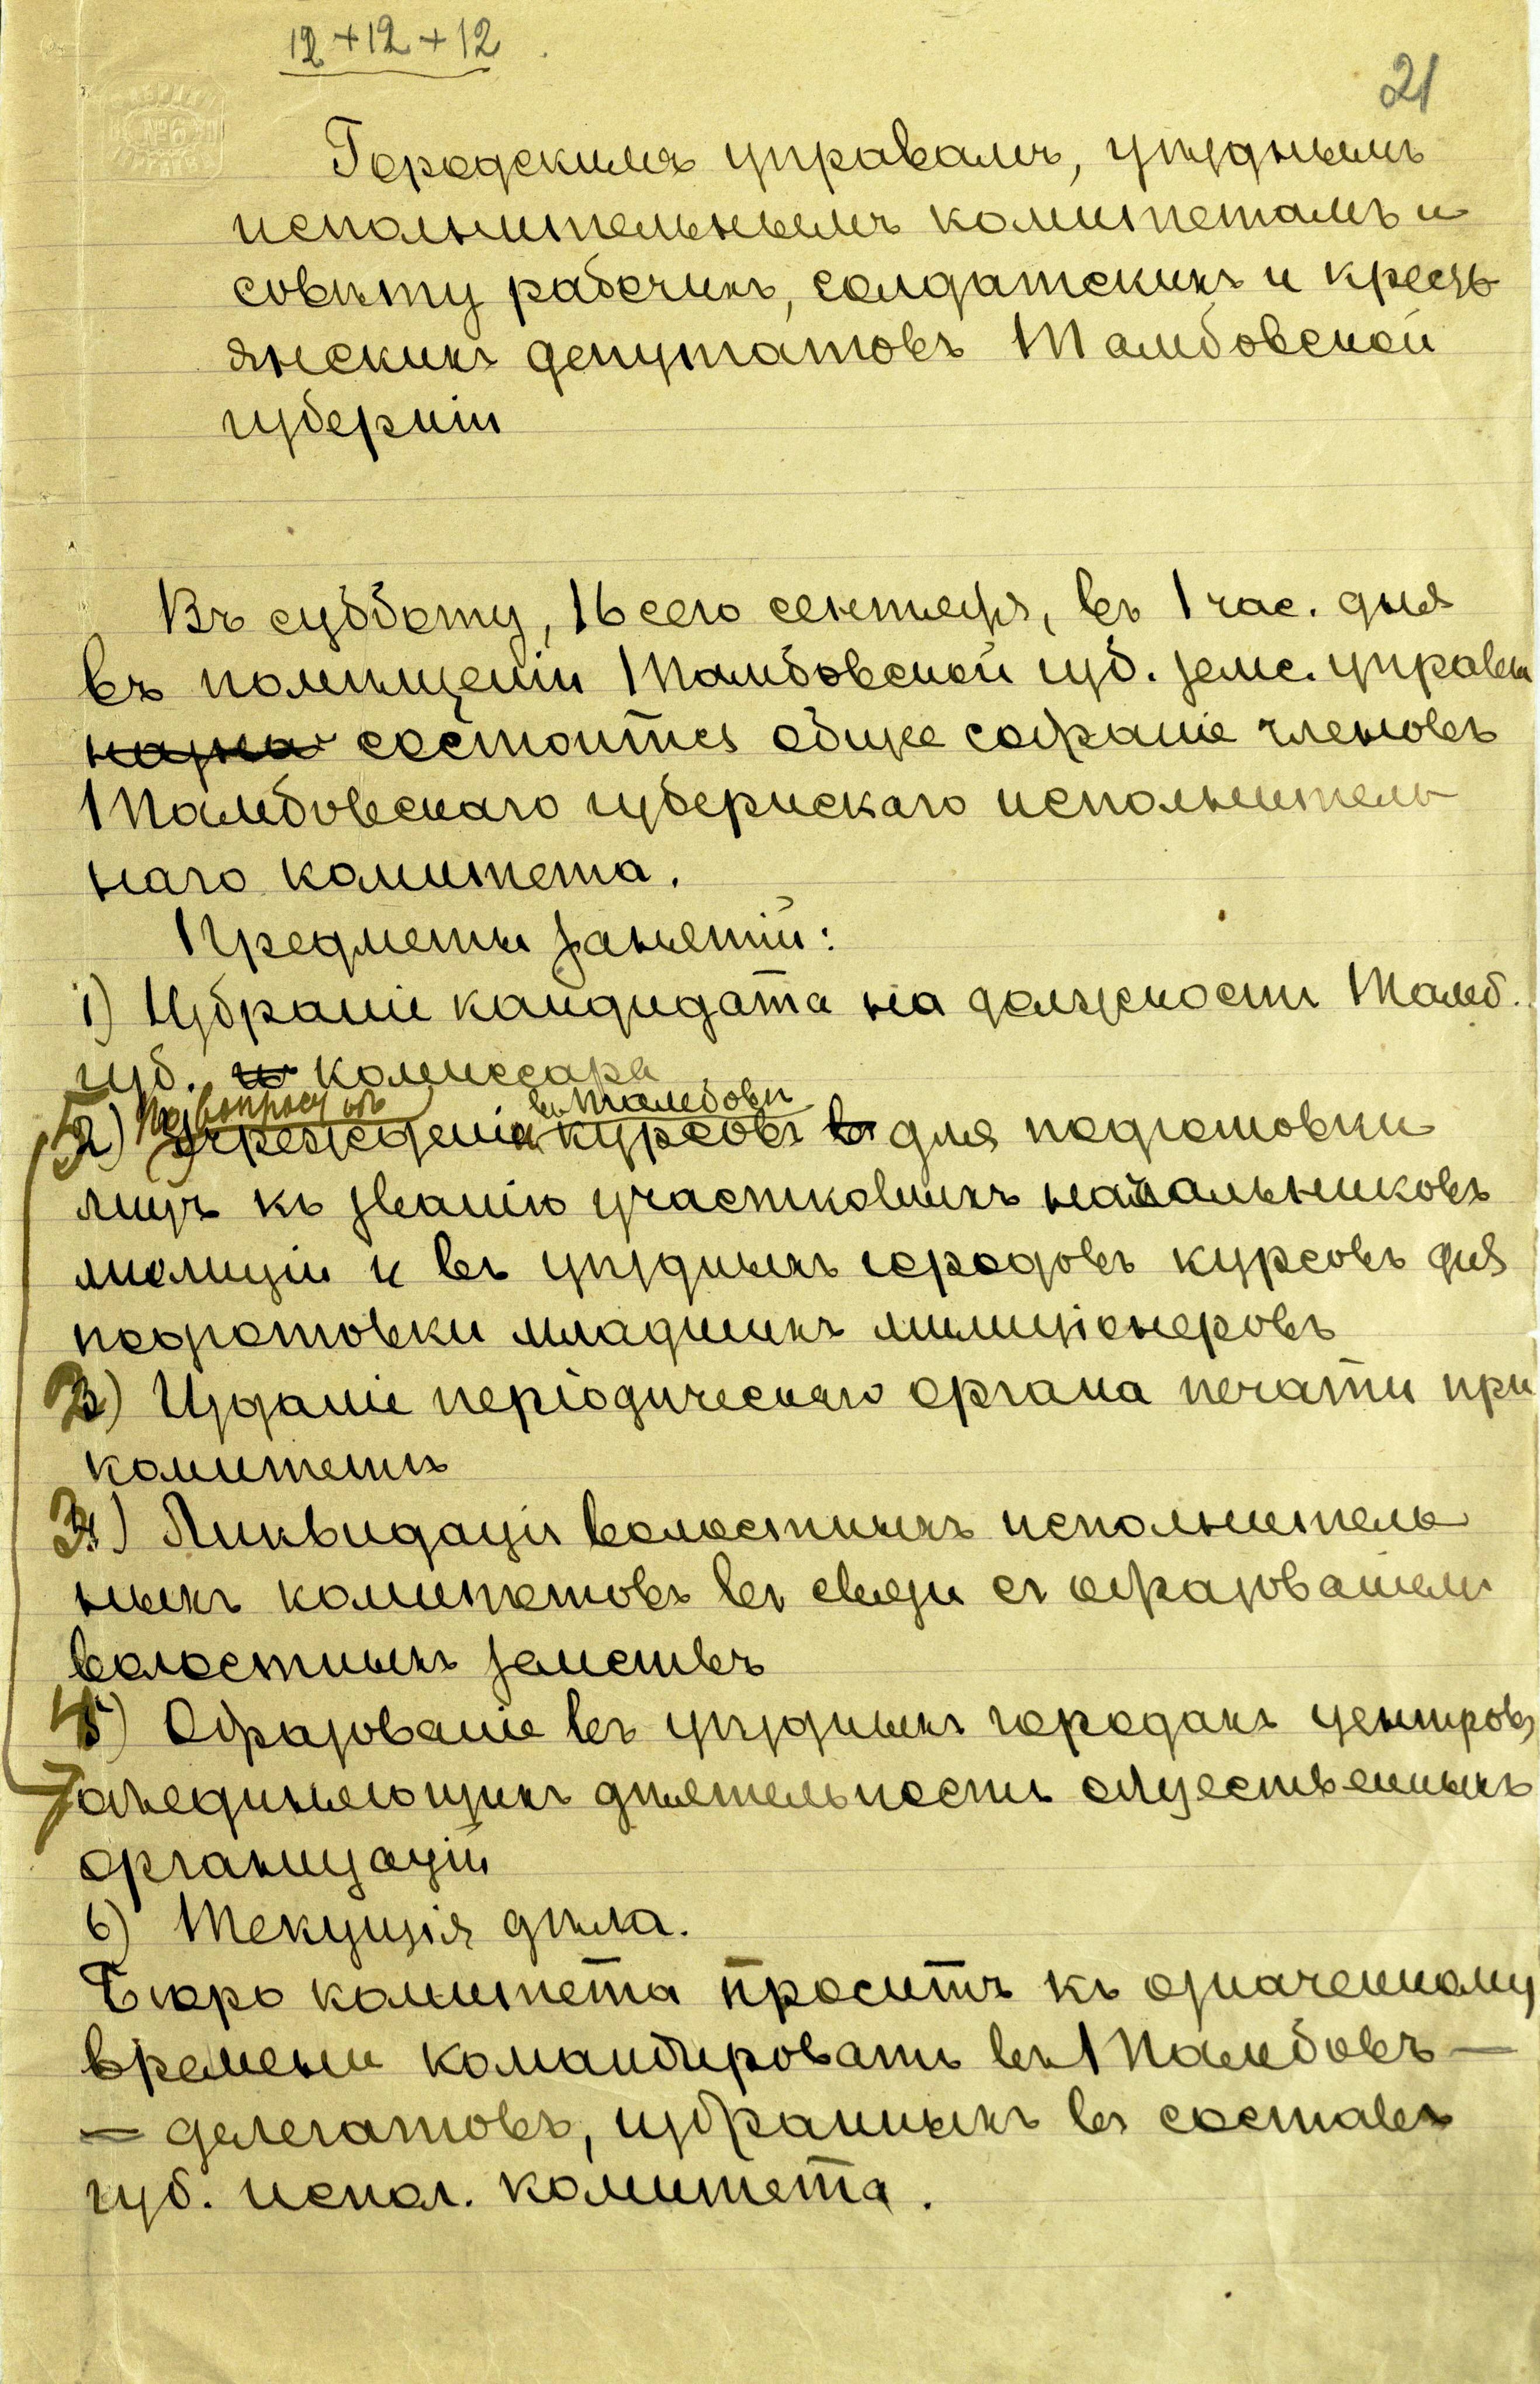 12+12+12
21
Городскимъ управамъ, уѣзднымъ
исполнительнымъ комитетамъ и
совѣту рабочихъ, солдатскихъ и кресть
янскихъ депутатовъ Тамбовской
губерніи
Въ субботу, 16 сего сентября, въ 1 час. дня
въ помѣщеніи Тамбовской губ. земс. управы
состоится общее собраніе членовъ
Тамбовскаго губернскаго исполнитель
наго комитета.
Предметы занятій:
1) Избраніе кандидата на должность Тамб.
губ. комиссара
По вопросу объ въ Тамбовѣ
2) учрежденіи курсовъ для подготовки
лицъ къ званію участковыхъ начальниковъ
милиціи и въ уѣздныхъ городовъ курсовъ для
подготовки младшихъ милиціонеровъ
3) Изданіе періодическаго органа печати при
комитетѣ
4) Ликвидація волостныхъ исполнитель
ныхъ комитетовъ въ связи съ образованіемъ
волостныхъ земствъ
5) Образованіе въ уѣздныхъ городахъ центровъ,
объединяющихъ дѣятельность общественныхъ
организацій
6) Текущія дѣла.
Бюро комитета проситъ къ означенному
времени командировать въ Тамбовъ —
— делегатовъ, избранныхъ въ составъ
губ. испол. комитета.